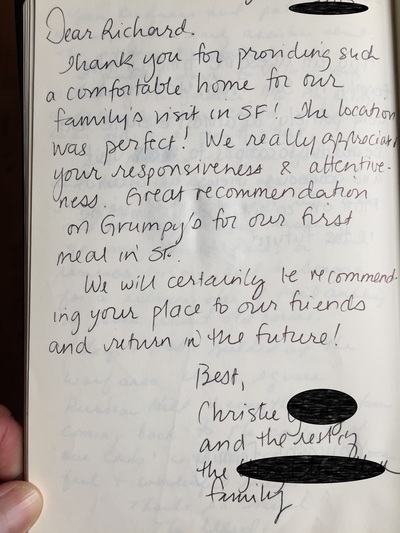 Dear Richard.
Thank you for providing such
a comfortable home for our
family's visit in SF! The location
was perfect! We really appreciat
your responsiveness & attentive-
ness. Great recommendation
on Grumpy's for our first
meal in SF.
We will certainly be recommend-
ing your place to our friends
and return in the future!
Best,
Christie
and the rest of
the
family